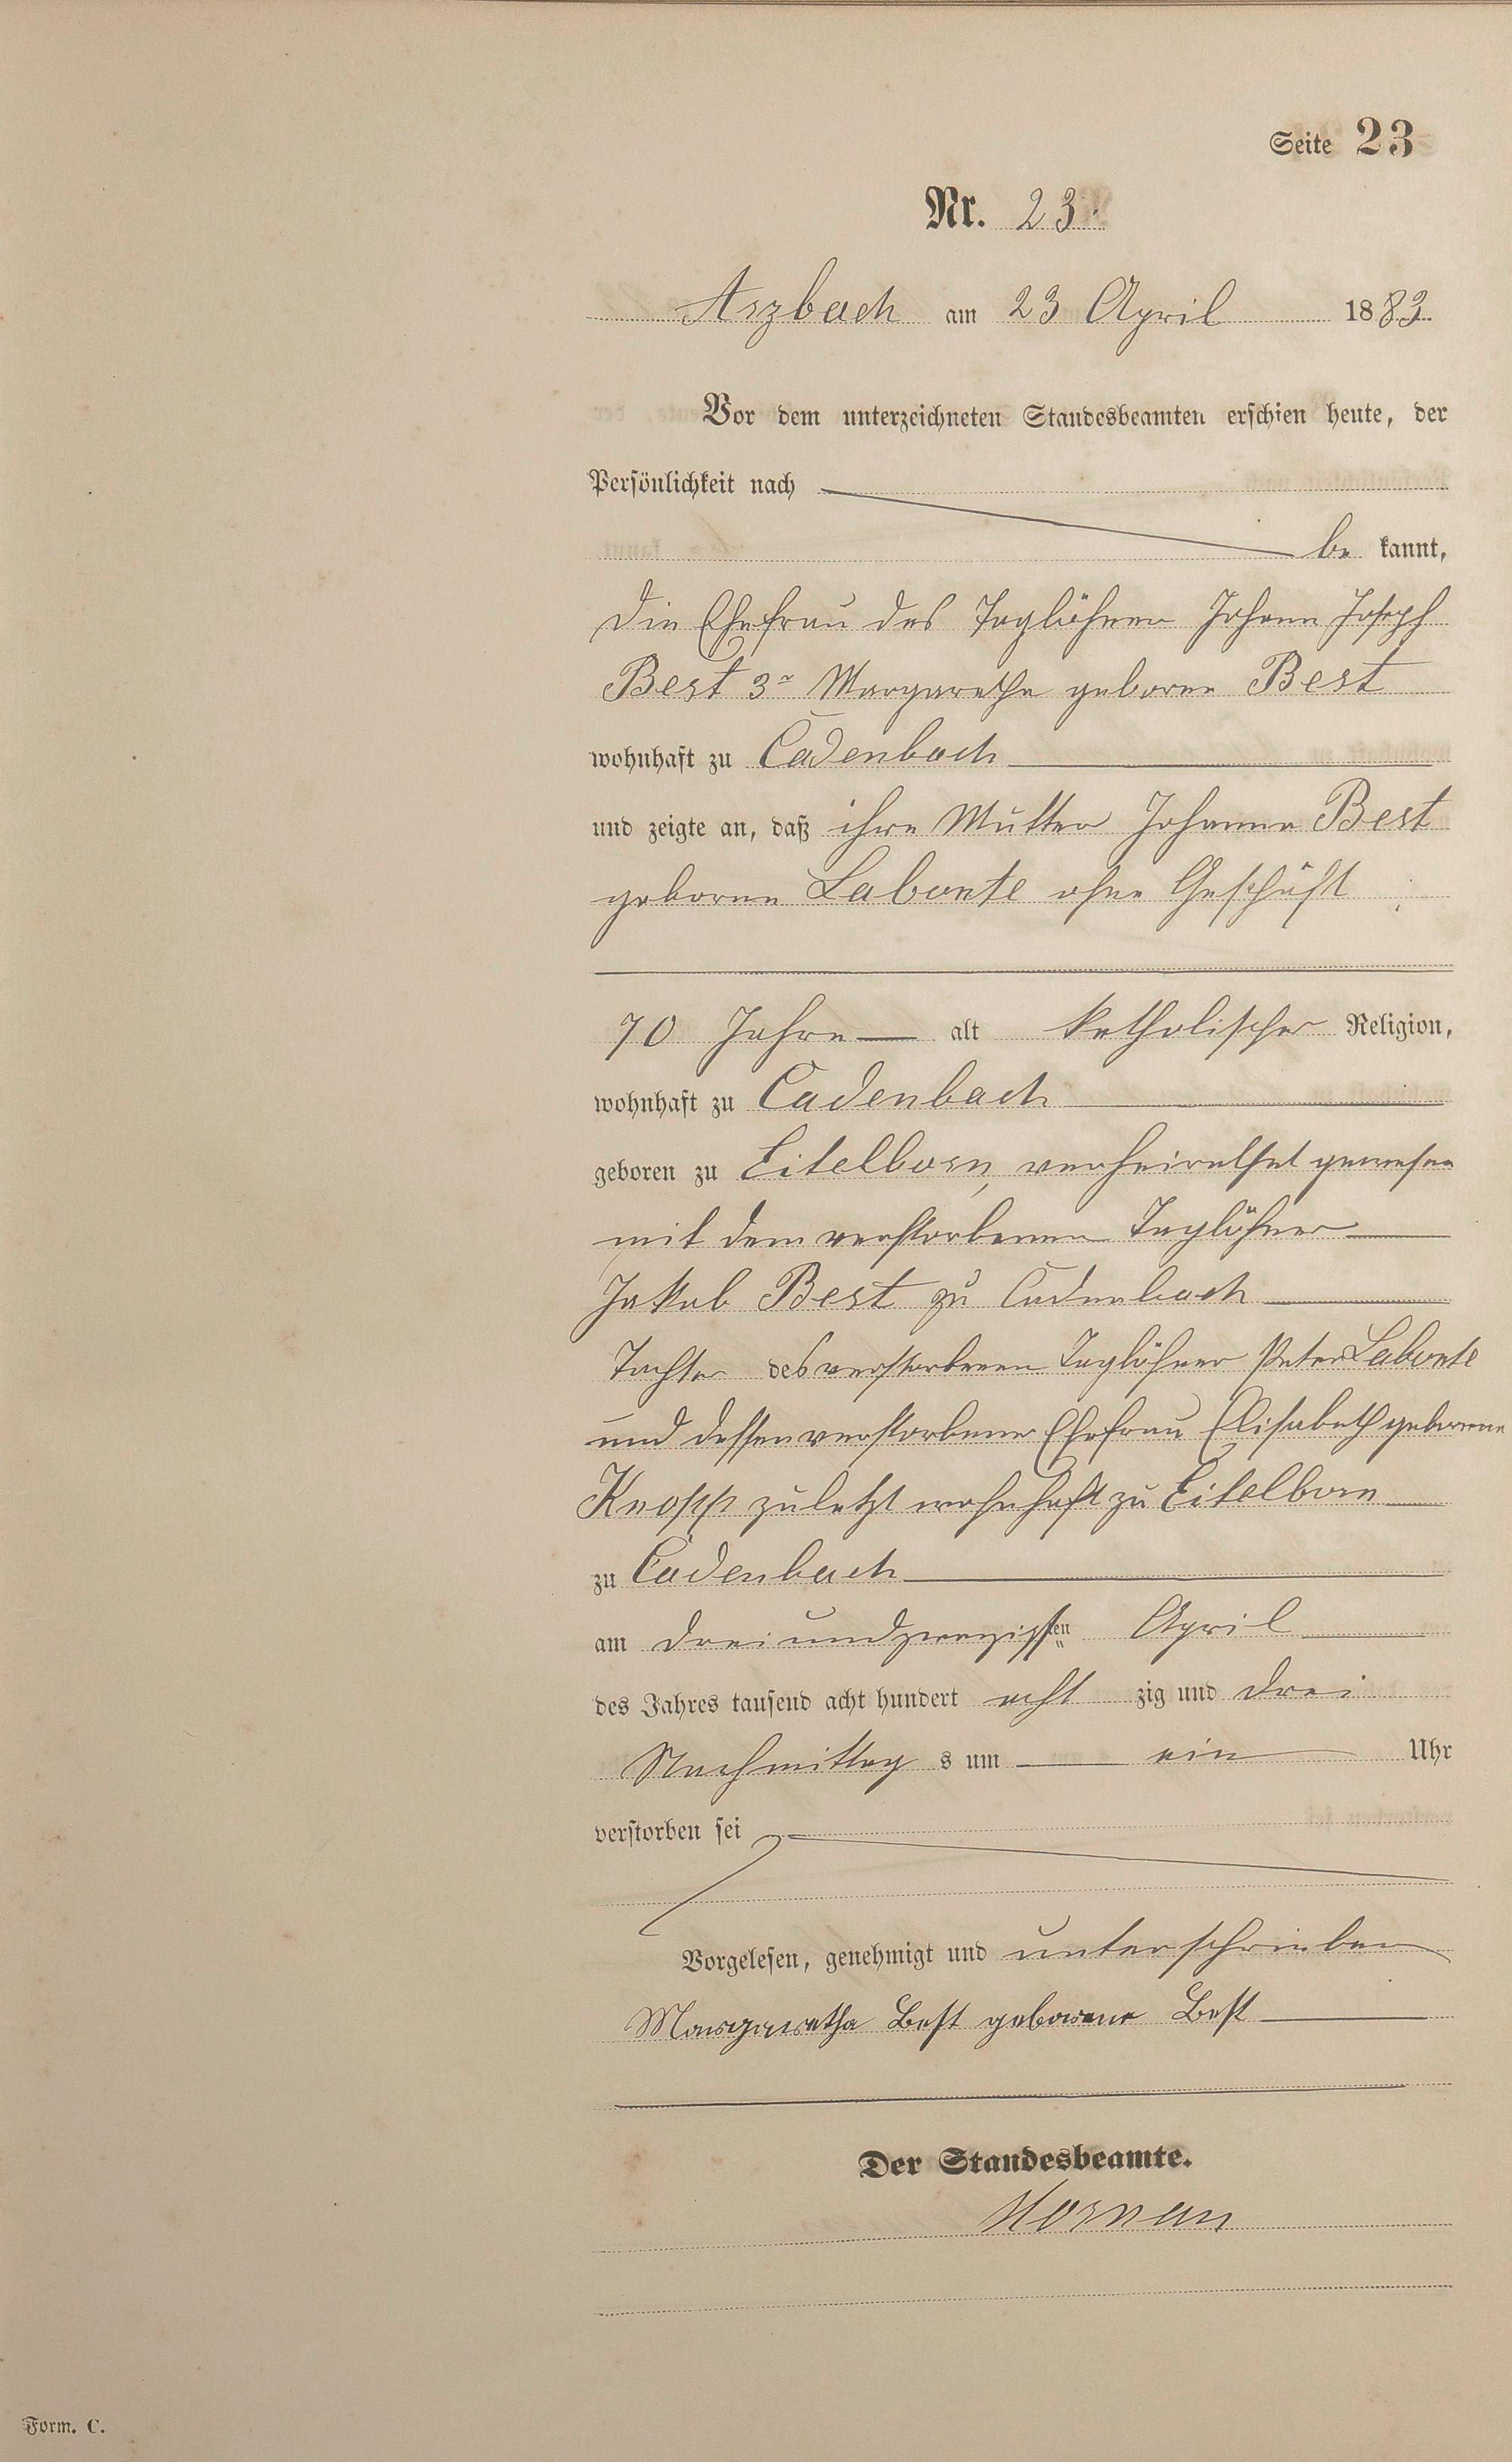 Seite 23
Nr. 23.
Arzbach am 23 April 1883.
Vor dem unterzeichneten Standesbeamten erschien heute, der
Persönlichkeit nach
be kannt,
die Ehefrau des Taglöhner Johann Joseph
Best 3r Margarethe geborne Best
wohnhaft zu Cadenbach
und zeigte an, daß ihre Mutter Johanna Best
geborene Labonte ohne Geschäft
70 Jahre alt katholischer Religion,
wohnhaft zu Cadenbach
geboren zu Eitelborn, verheirathet gewesen
mit dem verstorbenen Taglöhner
Jakob Best zu Cadenbach
Tochter des verstorbenen Taglöhner Peter Labonte
und dessen verstorbener Ehefrau Elisabeth geborene
Knopp zuletzt wohnhaft zu Eitelborn
zu Cadenbach
am dreiundzwanzigsten April
des Jahres tausend acht hundert acht zig und drei
Nachmittag s um ein Uhr
verstorben sei
Vorgelesen, genehmigt und unterschrieben
Margaretha Best geborene Best
Der Standesbeamte.
Form. C.